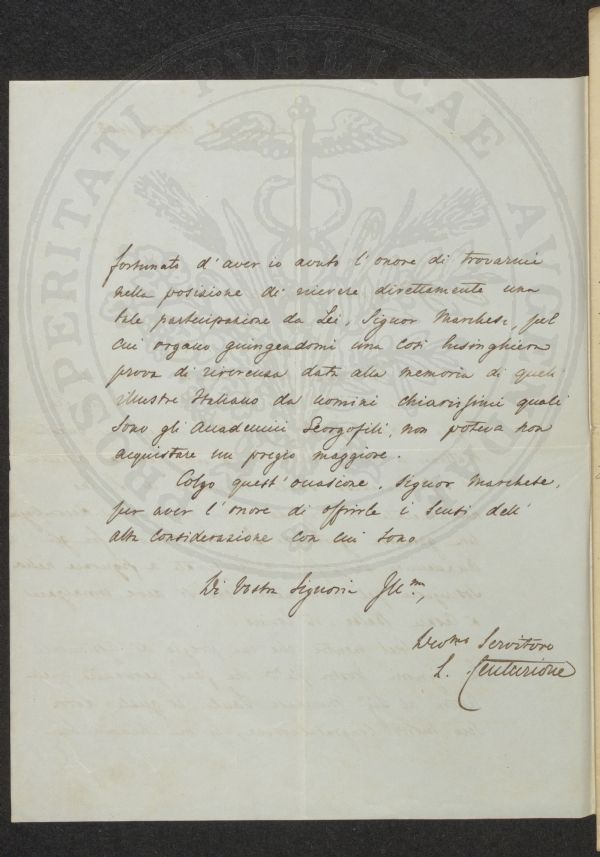 PROSPERITATI PUBLICAE AUGENDAE
fortunato d'aver io avuto l'onore di trovarmi
nella posizione di ricevere direttamente una
tale partecipazione da Lei, Signor Marchese, pel
cui organo giungendomi una così lusinghiera
prova di riverenza data alla memoria di quell'
illustre Italiano da uomini chiarissimi quali
sono gli Accademici Georgofili, non poteva non
acquistare un pregio maggiore.
Colgo quest'occasione, Signor Marchese,
per aver l'onore di offrirle i sensi dell'
alta considerazione con cui sono
Di Vostra Signoria Ill.ma,
Devmo Servitore
L. Centurione